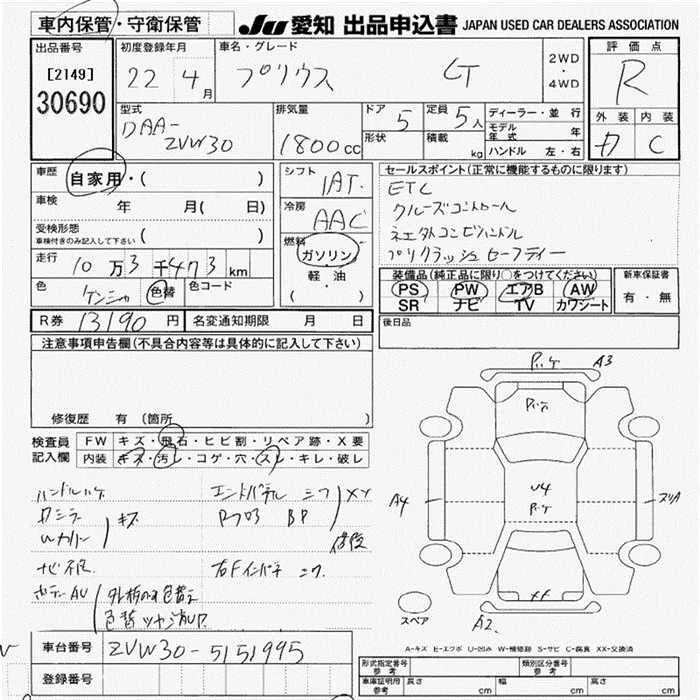 車内保管・守衛保管
JU 愛知 出品申込書 JAPAN USED CAR DEALERS ASSOCIATION
出品番号
[2149]
30690
初度登録年月
22 4月
車名・グレード
プリウス LT
2WD
・
4WD
評価点
R
外装 内装
C
型式
DAA-
ZVW30
排気量
1800cc
ドア 5
形状
定員 5人
積載 kg
ディーラー・並行
モデル年式 年
ハンドル 左・右
車歴
自家用・( )
車検 年 月( 日)
受検形態
車検付きのみ記入して下さい ( )
走行 10万3千473km
色 色替 色コード
R券 13190円 名変通知期限 月 日
シフト
IAT
冷房
AAC
燃料
ガソリン
・
軽・油
( )
セールスポイント(正常に機能するものに限ります)
ETC
クルーズコントロール
プリクラッシュセーフティー
装備品(純正品に限り○をつけてください)
PS PW エアB AW
SR ナビ TV カワシート
新車保証書
有・無
後日品
注意事項申告欄(不具合内容等は具体的に記入して下さい)
修復歴 有 (箇所
検査員
記入欄
FW キズ・飛石・ヒビ割・リペア跡・X要
内装 キズ・汚レ・コゲ・穴・スレ・キレ・破レ
ハンドルハゲ
キズ
エンドパネル
XX
ナビ不良
右Fインパネ
ボデーAU
A3
A4
U4
XX
A2
スペア
A-キズ E-エクボ U-凹み W-補修跡 S-サビ C-腐食 XX-交換済
車台番号 ZVW30-5151995
登録番号
形式指定番号
参考
類別区分番号
参考
車庫証明用
参考
長さ cm 幅 cm 高さ cm